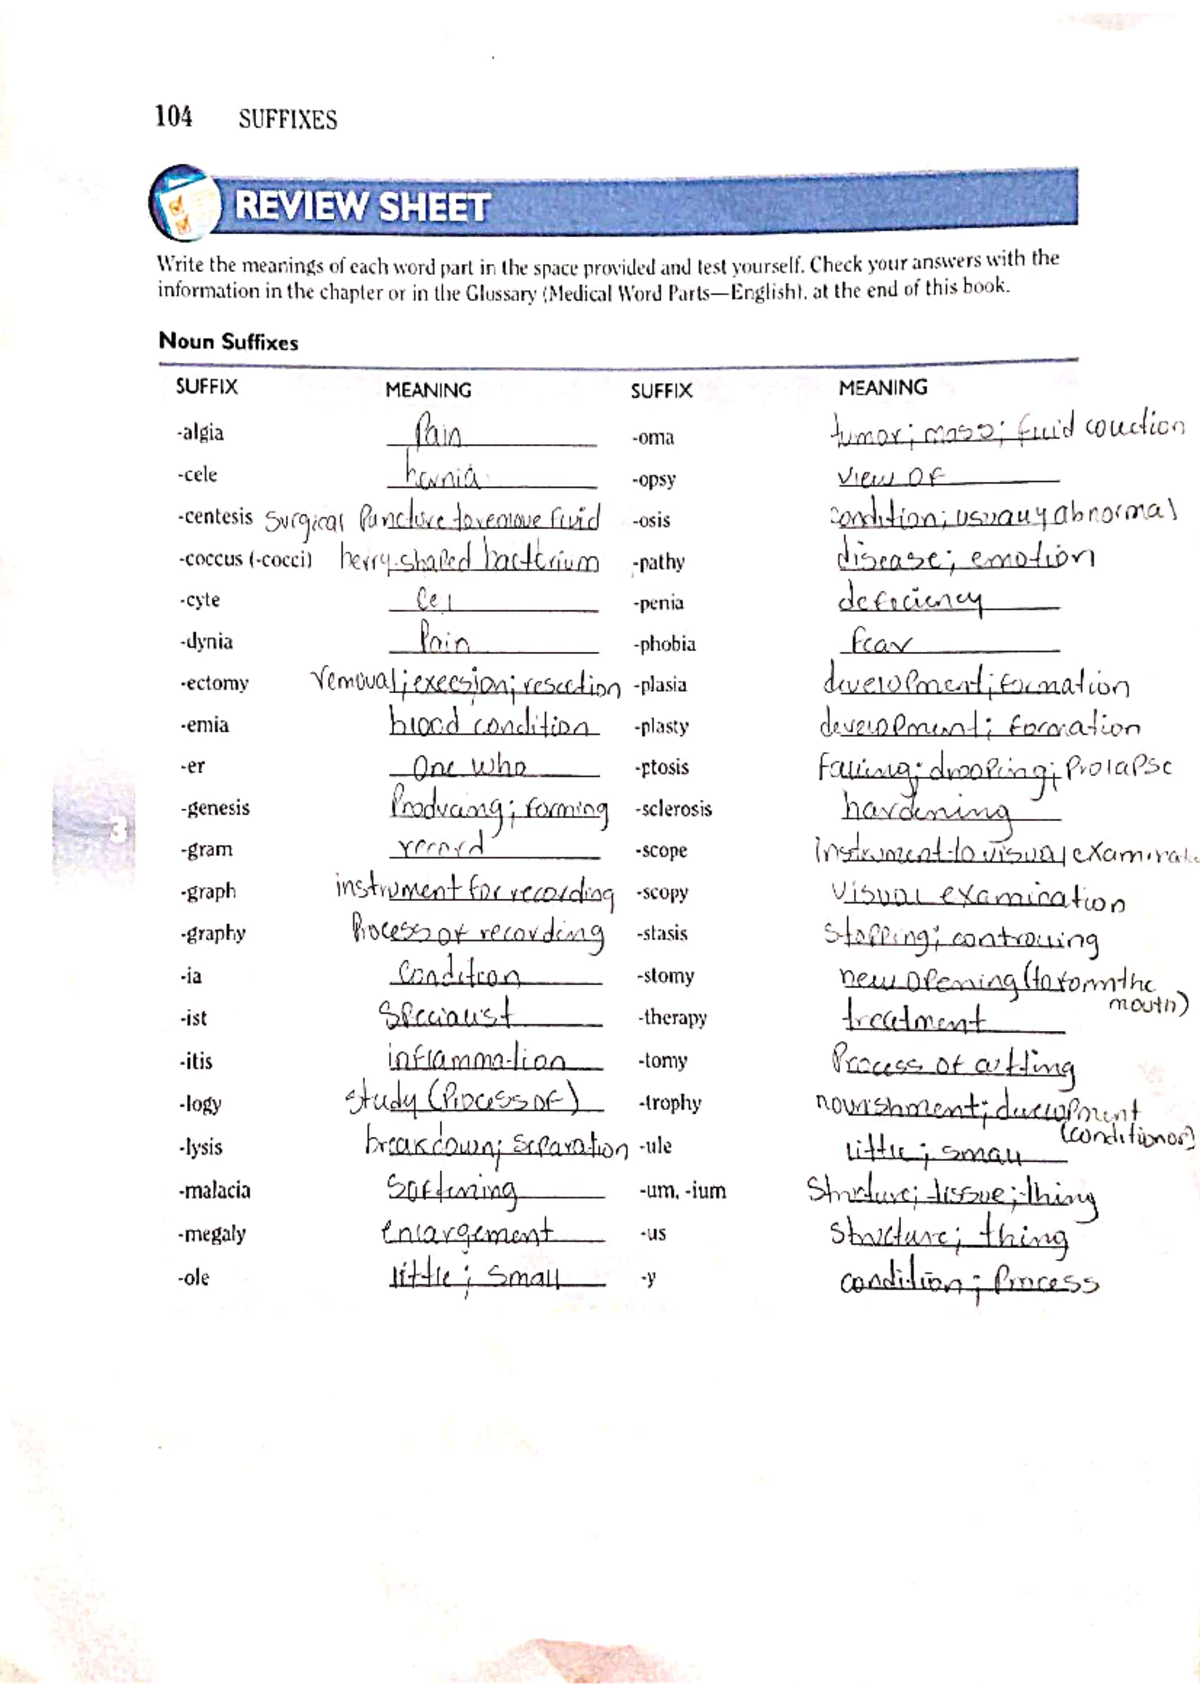 104 SUFFIXES
REVIEW SHEET
Write the meanings of each word part in the space provided and test yourself. Check your answers with the
information in the chapter or in the Glossary (Medical Word Parts—English), at the end of this book.
Noun Suffixes
SUFFIX MEANING SUFFIX MEANING
-algia Pain -oma tumor; mass; fluid collection
-cele hernia -opsy view of
-centesis Surgical Puncture to remove fluid -osis condition; usually abnormal
-coccus (-cocci) berry-shaped bacterium -pathy disease; emotion
-cyte Cel -penia deficiency
-dynia Pain -phobia fear
-ectomy removal; execsion; resection -plasia development; formation
-emia blood condition -plasty development; formation
-er One who -ptosis falling; drooping; Prolapse
-genesis Producing; forming -sclerosis hardening
-gram record -scope instrument to visual
-graph instrument for recording -scopy visual examination
-graphy Process of recording -stasis stopping; controlling
-ia Condition -stomy new opening (to form the
mouth)
-ist Specialist -therapy treatment
-itis inflammation -tomy Process of cutting
-logy study (Process of) -trophy nourishment; development
(condition of)
-lysis breakdown; separation -ule little; small
-malacia Softening -um, -ium Structure; tissue; thing
-megaly enlargement -us structure; thing
-ole little; small -y condition; Process
3